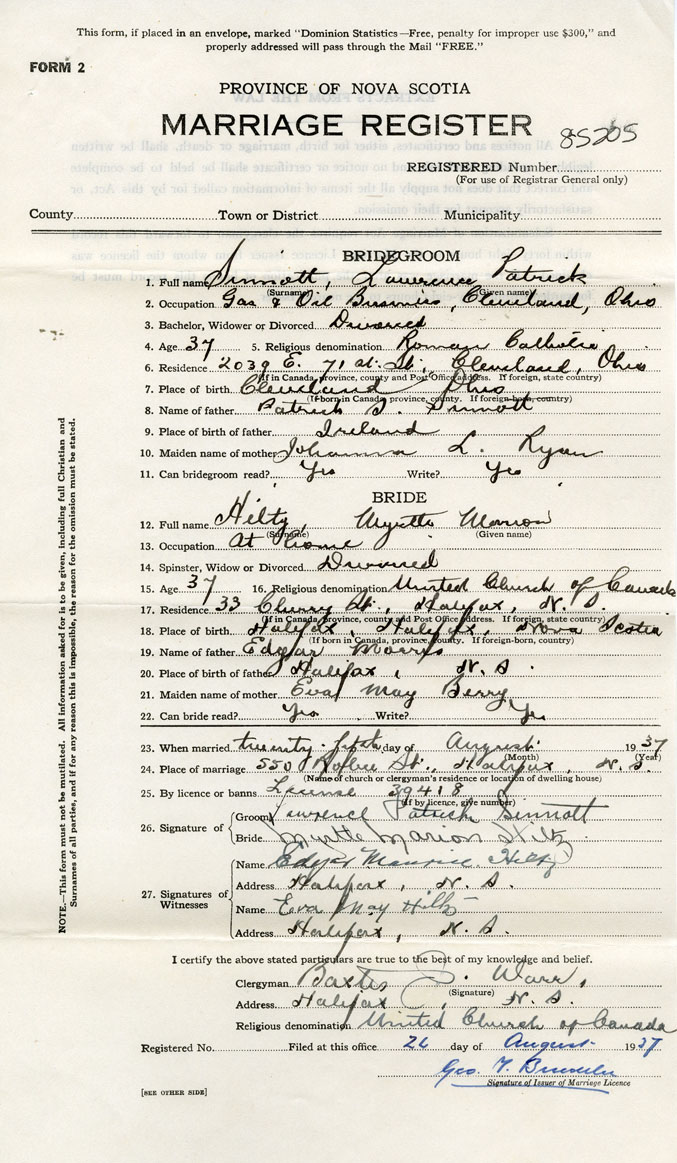 This form, if placed in an envelope, marked "Dominion Statistics—Free, penalty for improper use $300," and
properly addressed will pass through the Mail "FREE."
FORM 2
PROVINCE OF NOVA SCOTIA
MARRIAGE REGISTER
85205
REGISTERED Number
(For use of Registrar General only)
County Town or District Municipality
BRIDEGROOM
1. Full name Sinnott, Lawrence Patrick
(Surname) (Given name)
2. Occupation Gas & Oil Business, Cleveland, Ohio
3. Bachelor, Widower or Divorced Divorced
4. Age 37 5. Religious denomination Roman Catholic
6. Residence 2039 E. 71 st. St., Cleveland, Ohio
(If in Canada, province, county and Post Office address. If foreign, state country)
7. Place of birth Cleveland Ohio
(If born in Canada, province, county. If foreign-born, country)
8. Name of father Patrick J. Sinnott
9. Place of birth of father Ireland
10. Maiden name of mother Johanna L. Ryan
11. Can bridegroom read? Yes Write? Yes
BRIDE
12. Full name Hiltz, Myrtle Marion
(Surname) (Given name)
13. Occupation At home
14. Spinster, Widow or Divorced Divorced
15. Age 37 16. Religious denomination United Church of Canada
17. Residence 33 Cherry St., Halifax, N. S.
(If in Canada, province, county and Post Office address. If foreign, state country)
18. Place of birth Halifax, Halifax, Nova Scotia
(If born in Canada, province, county. If foreign-born, country)
19. Name of father Edgar
20. Place of birth of father Halifax, N. S.
21. Maiden name of mother Eva May Berry
22. Can bride read? Yes Write? Yes
23. When married twenty- day of August 1937
(Month) (Year)
24. Place of marriage 550 Robie St., Halifax, N. S.
(Name of church or clergyman's residence or location of dwelling house)
25. By licence or banns License 39418
(If by licence, give number)
26. Signature of Groom Lawrence Patrick Sinnott
Bride Myrtle Marion Hiltz
27. Signatures of Witnesses
Name Edgar Maurice Hiltz
Address Halifax, N. S.
Name Eva May Hiltz
Address Halifax, N. S.
I certify the above stated particulars are true to the best of my knowledge and belief.
Clergyman Baxter
(Signature)
Address Halifax, N. S.
Religious denomination United Church of Canada
Registered No. Filed at this office 26 day of August 1937
Geo.
Signature of Issuer of Marriage Licence
[SEE OTHER SIDE]
NOTE.—This form must not be mutilated. All information asked for is to be given, including full Christian and
Surnames of all parties, and if for any reason this is impossible, the reason for the omission must be stated.